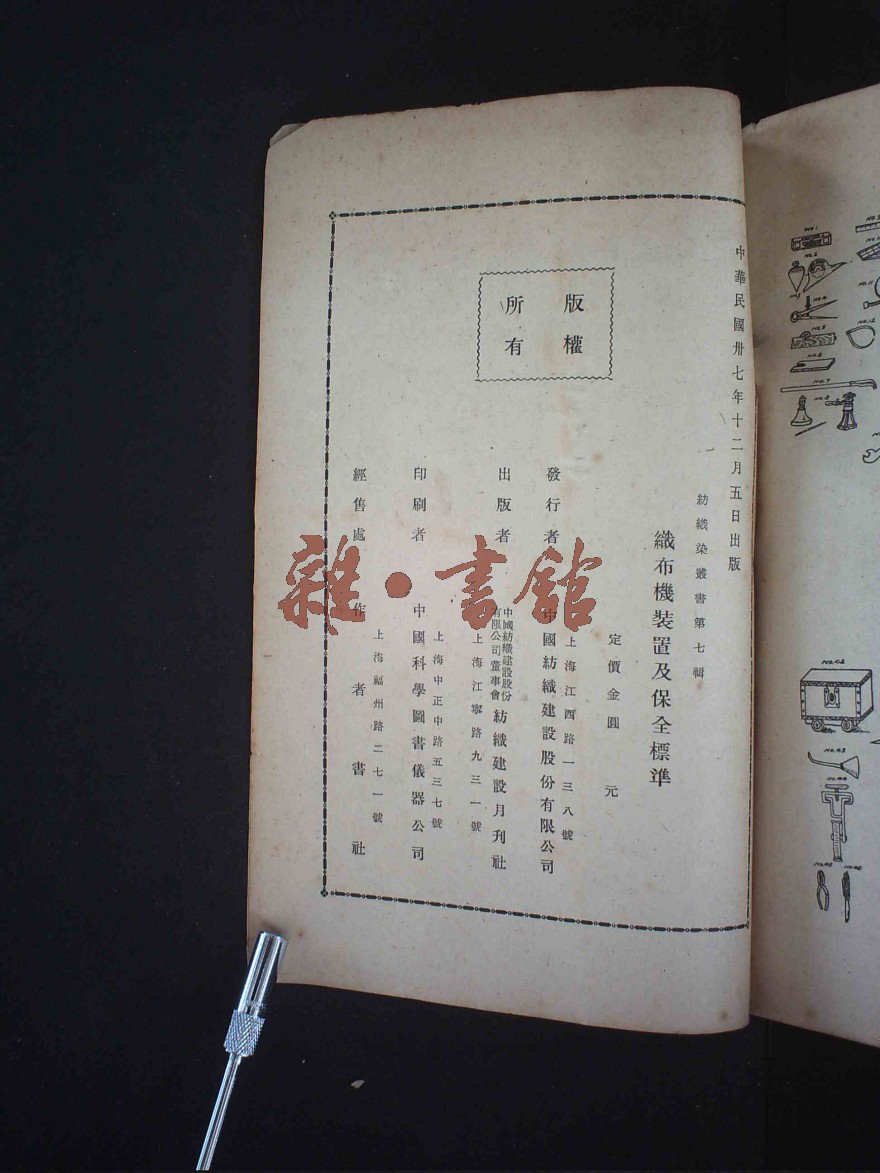 中華民國卅七年十二月五日出版
紡織染叢書第七輯
織布機裝置及保全標準
定價金圓 元
發行者 中國紡織建設股份有限公司
上海江西路一三八號
出版者 中國紡織建設股份有限公司董事會 紡織建設月刊社
上海江寧路九三一號
印刷者 中國科學圖書儀器公司
上海中正中路五三七號
經售處 作者書社
上海福州路二七一號
版權所有
雜·書館
NO.1
NO.2
NO.4
NO.5
NO.6
NO.7
NO.8
NO.11
NO.12
NO.42
NO.43
NO.44